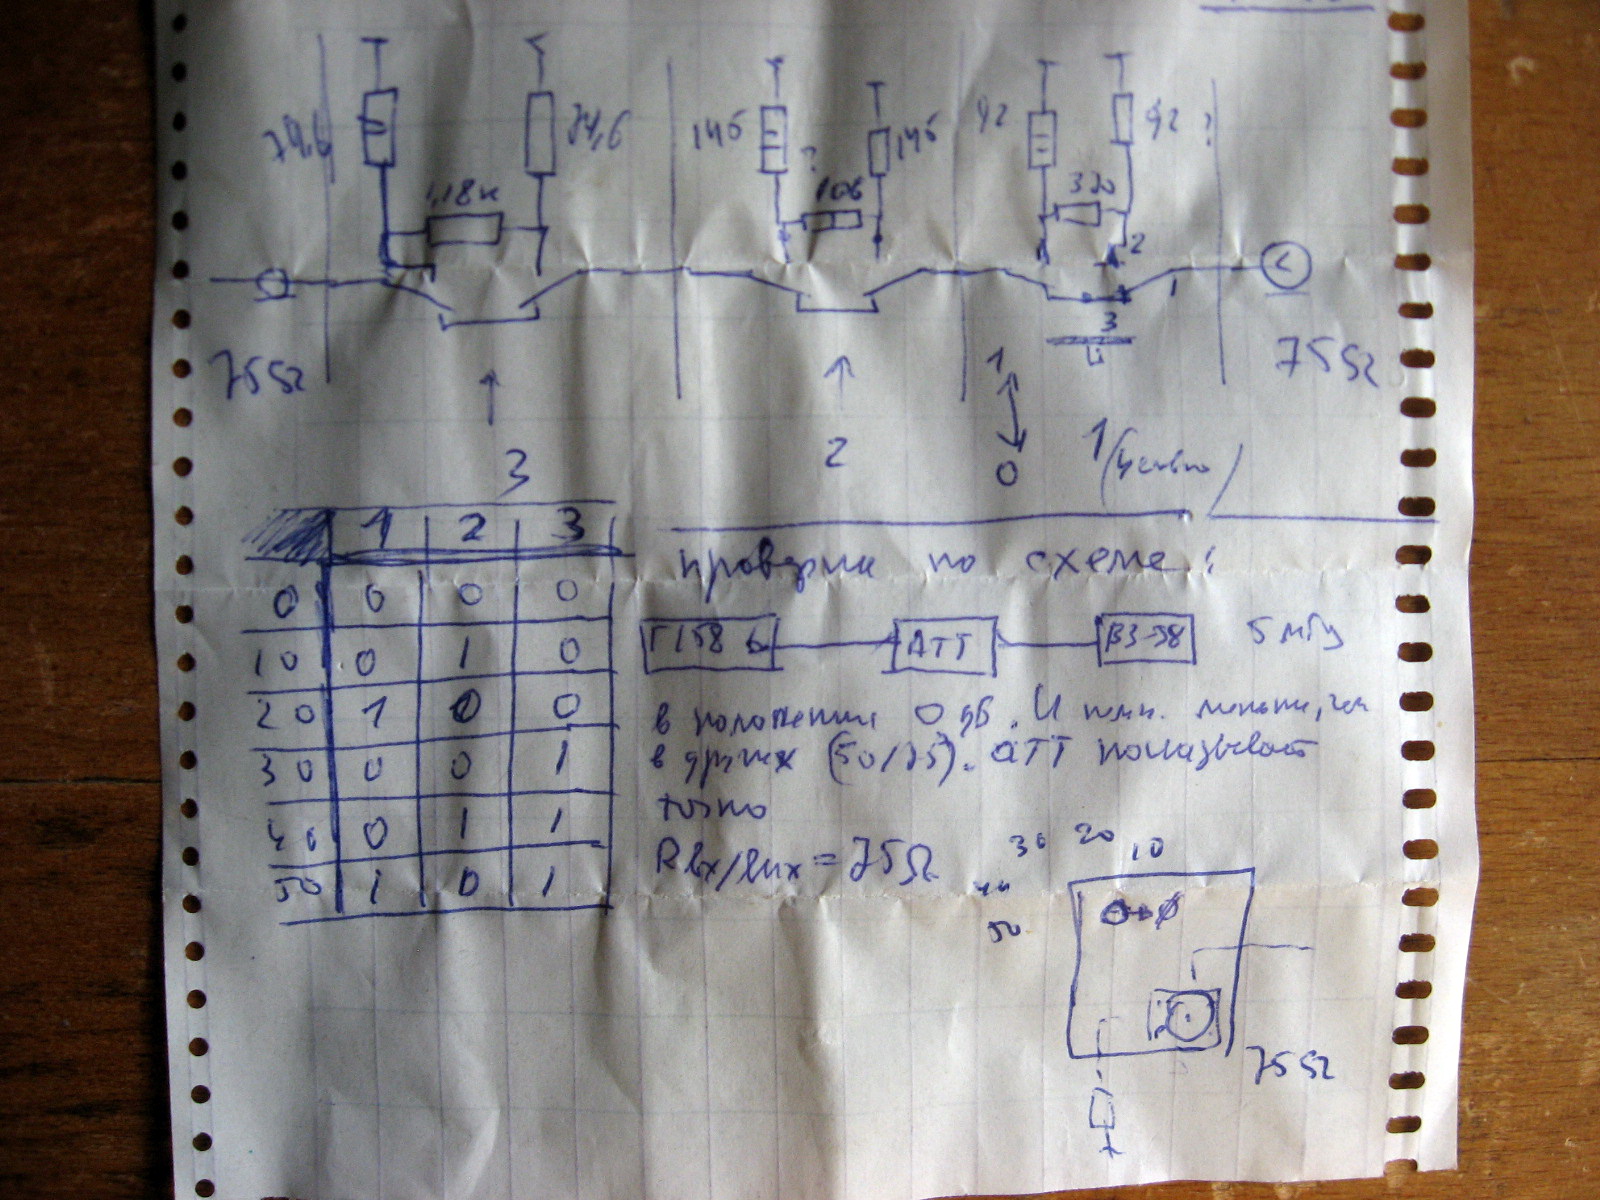 79,6
79,6
1,18к
145
145
?
106
92
92
?
370
2
1
3
75Ω
75Ω
3
2
1
0
1
1 2 3
0 0 0 0
10 0 1 0
20 1 0 0
30 0 0 1
40 0 1 1
50 1 0 1
по схеме:
АТТ
В3-38
5 мГц
в положении 0 дБ. И
в других (50/75). АТТ показывает
точно
Rвх/вых = 75Ω
30 20 10
40
50
75Ω